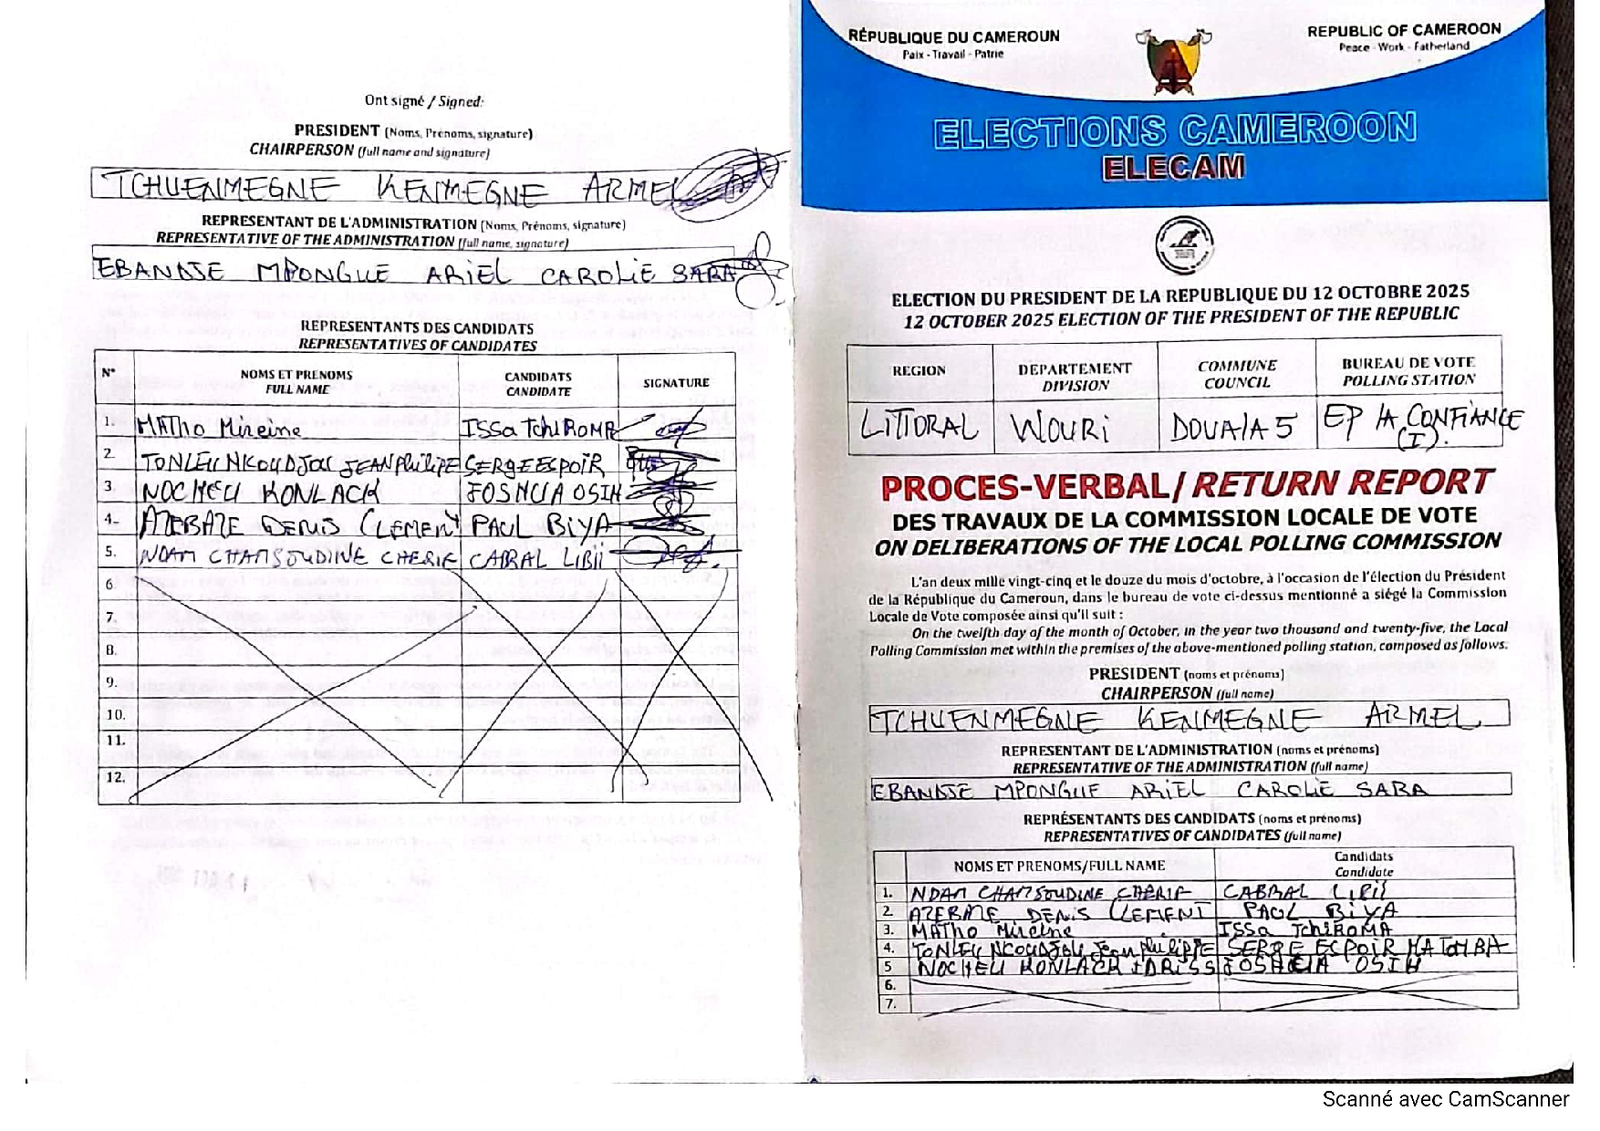 Ont signé / Signed:
PRESIDENT (Noms, Prénoms, signature)
CHAIRPERSON (full name and signature)
TCHUENMEGNE KENMEGNE ARMEL
REPRESENTANT DE L'ADMINISTRATION (Noms, Prénoms, signature)
REPRESENTATIVE OF THE ADMINISTRATION (full name, signature)
EBANDSE MPONGUE ARIEL CAROLIE SARA
REPRESENTANTS DES CANDIDATS
REPRESENTATIVES OF CANDIDATES
N° NOMS ET PRENOMS CANDIDATS SIGNATURE
FULL NAME CANDIDATE
1. MATHO Mireine Issa TchiROMA
2. TONLEU NKOUDJOU JEAN PhiLiPE SERGE ESPOIR
3. NOCHEU KONLACK JOSHUA OSIH
4. AZEBAZE DENIS CLEMENT PAUL BIYA
5. NDAM CHAMSOUDINE CHERIF CABRAL LIBII
6.
7.
8.
9.
10.
11.
12.
RÉPUBLIQUE DU CAMEROUN
Paix - Travail - Patrie
REPUBLIC OF CAMEROON
Peace - Work - Fatherland
ELECTIONS CAMEROON
ELECAM
ELECTION DU PRESIDENT DE LA REPUBLIQUE DU 12 OCTOBRE 2025
12 OCTOBER 2025 ELECTION OF THE PRESIDENT OF THE REPUBLIC
REGION DEPARTEMENT COMMUNE BUREAU DE VOTE
DIVISION COUNCIL POLLING STATION
LITTORAL WOURI DOUALA 5 EP LA CONFIANCE
(I).
PROCES-VERBAL/ RETURN REPORT
DES TRAVAUX DE LA COMMISSION LOCALE DE VOTE
ON DELIBERATIONS OF THE LOCAL POLLING COMMISSION
L'an deux mille vingt-cinq et le douze du mois d'octobre, à l'occasion de l'élection du Président
de la République du Cameroun, dans le bureau de vote ci-dessus mentionné a siégé la Commission
Locale de Vote composée ainsi qu'il suit :
On the twelfth day of the month of October, in the year two thousand and twenty-five, the Local
Polling Commission met within the premises of the above-mentioned polling station, composed as follows:
PRESIDENT (noms et prénoms)
CHAIRPERSON (full name)
TCHUENMEGNE KENMEGNE ARMEL
REPRESENTANT DE L'ADMINISTRATION (noms et prénoms)
REPRESENTATIVE OF THE ADMINISTRATION (full name)
EBANDSE MPONGUE ARIEL CAROLIE SARA
REPRÉSENTANTS DES CANDIDATS (noms et prénoms)
REPRESENTATIVES OF CANDIDATES (full name)
NOMS ET PRENOMS/FULL NAME Candidats
Candidate
1. NDAM CHAMSOUDINE CHERIF CABRAL LIBII
2. AZEBAZE DENIS CLEMENT PAUL BIYA
3. MATHO Mireine Issa TchiROMA
4. TONLEU NKOUDJOU Jean philippe SERGE ESPOIR MATOMBA
5 NOCHEU KONLACK IDRISS JOSHUA OSIH
6.
7.
Scanné avec CamScanner